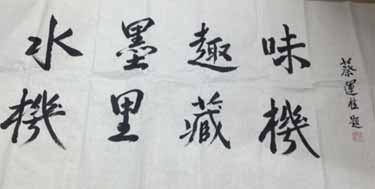 水墨趣味
機里藏機
蔡運桂題